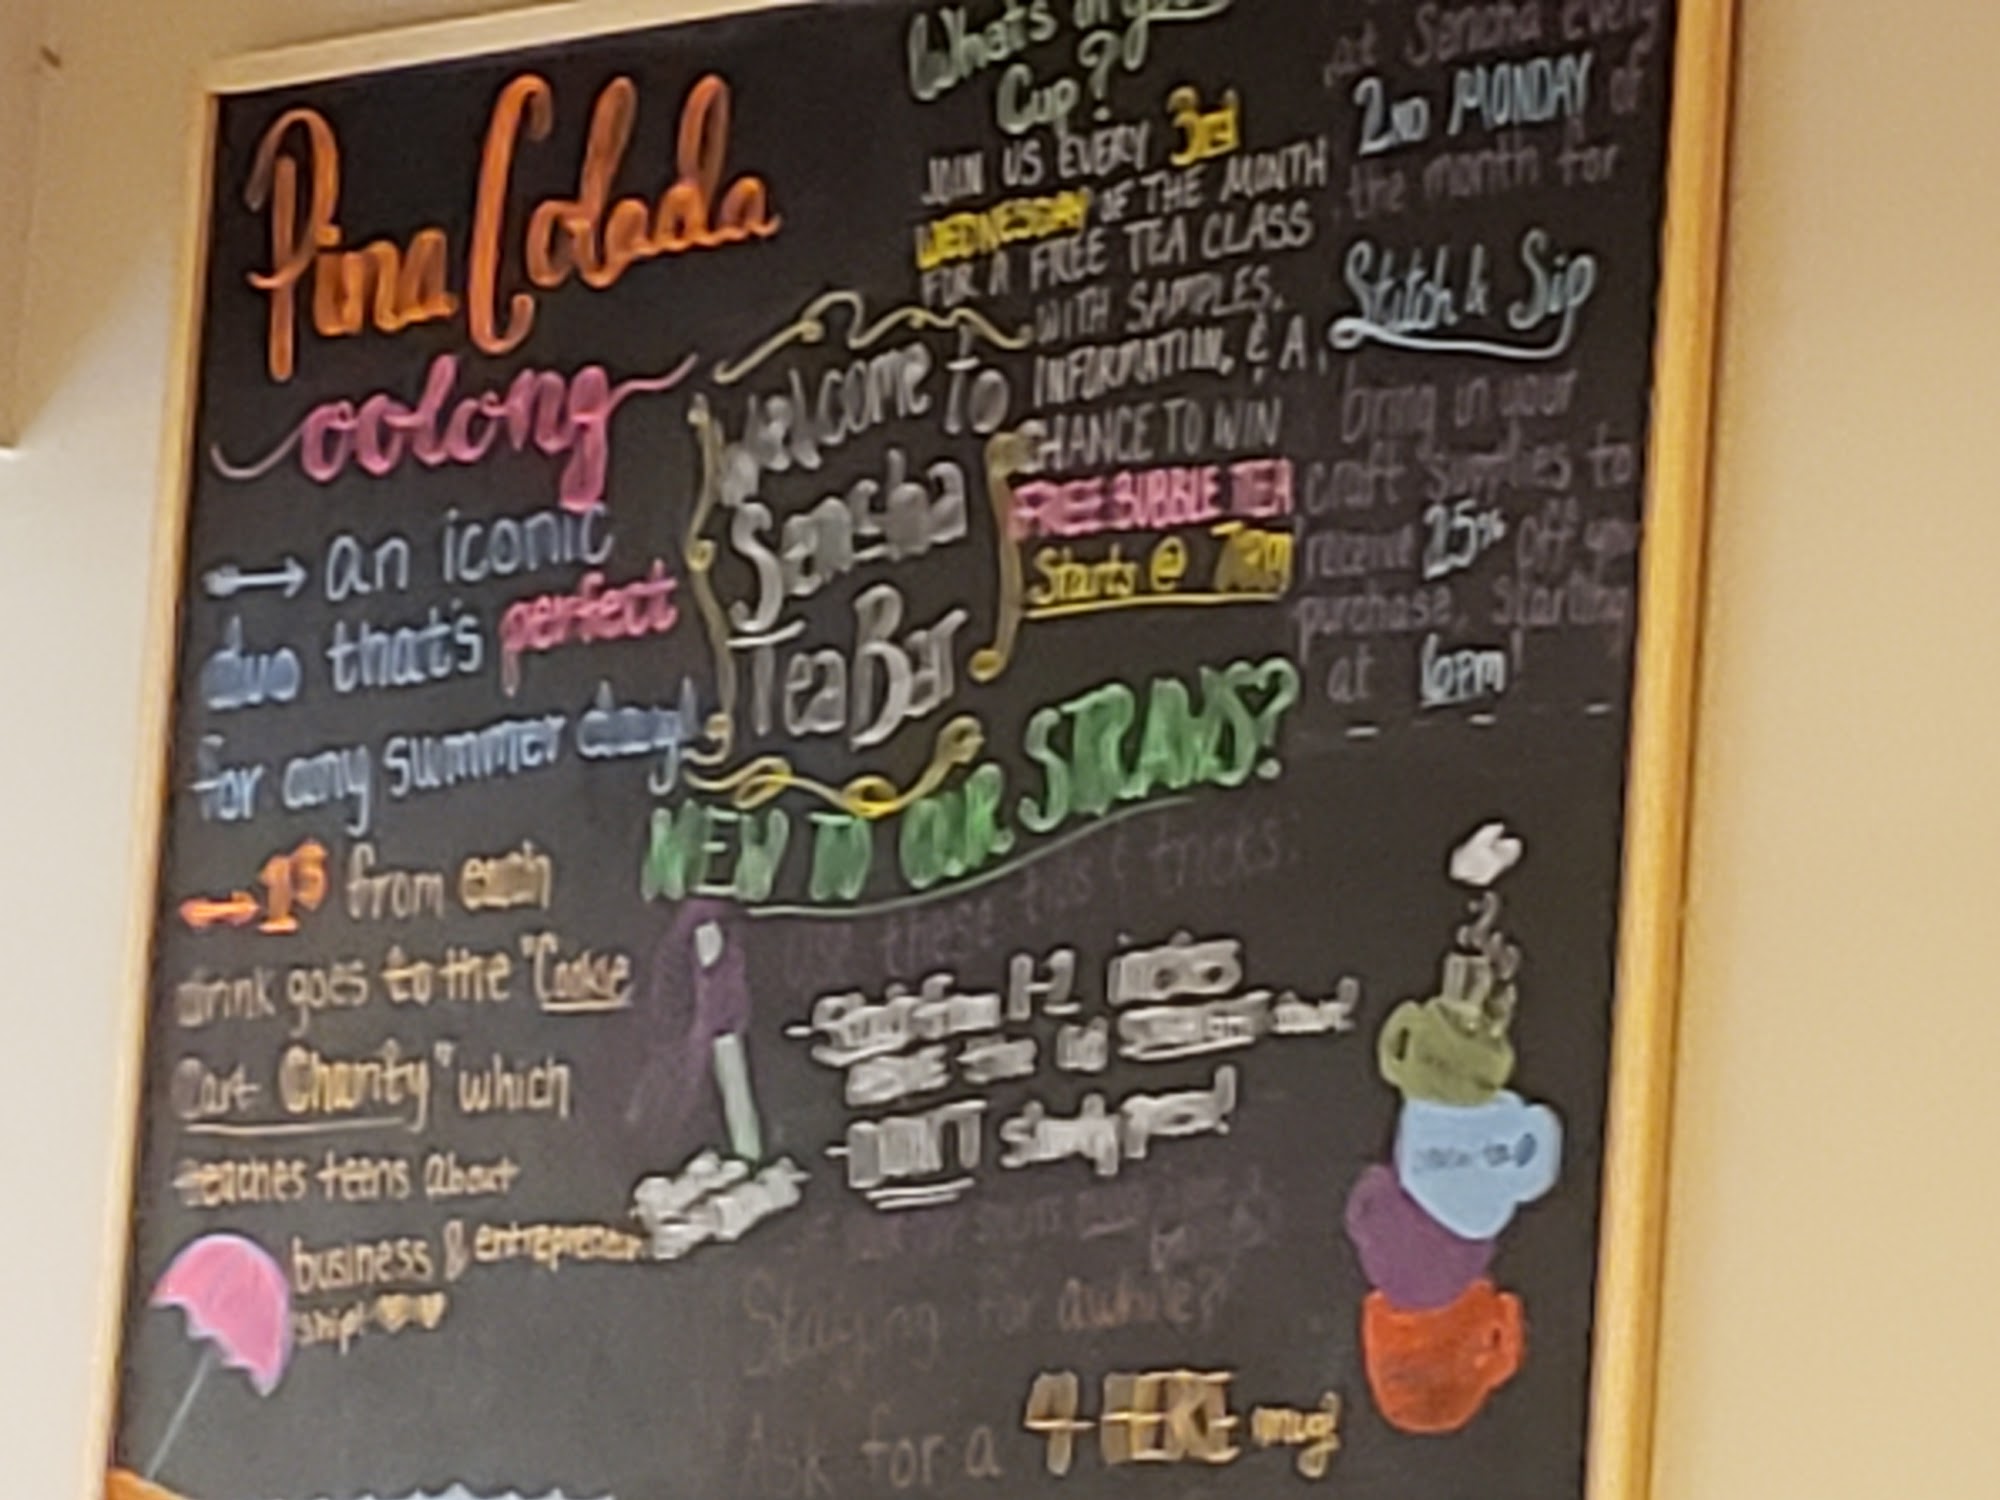 Pina Colada
oolong
→ an iconic
duo that's perfect
for any summer day!
→ 1$ from each
drink goes to the "Cookie
Cart Charity" which
teaches teens about
business & entrepreneur
ship!
What's in your
Cup?
JOIN US EVERY 3RD
WEDNESDAY OF THE MONTH
FOR A FREE TEA CLASS
WITH SAMPLES,
INFORMATION, & A
CHANCE TO WIN
FREE BUBBLE TEA
Starts @ 7PM
Welcome To
Sencha
Tea Bar
At Sencha every
2ND MONDAY of
the month for
Stitch & Sip
bring in your
craft supplies to
receive 25% off your
purchase, starting
at 6PM!
NEW TO OUR STRAWS?
these tips & tricks:
1-2
DON'T
Staying for awhile?
Ask for a 4 HERE mug!